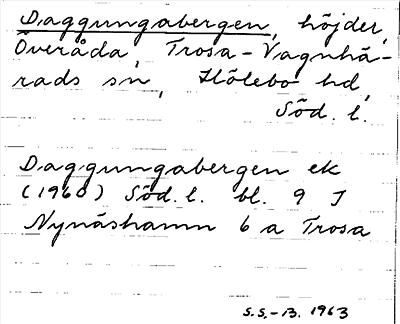 Daggungabergen, höjder,
Överåda, Trosa-Vagnhä-
rads sn, Hölebo hd,
Söd. l.
Daggungabergen ek
(1960) Söd. l. bl. 9 J
Nynäshamn 6 a Trosa
S.S.-B. 1963